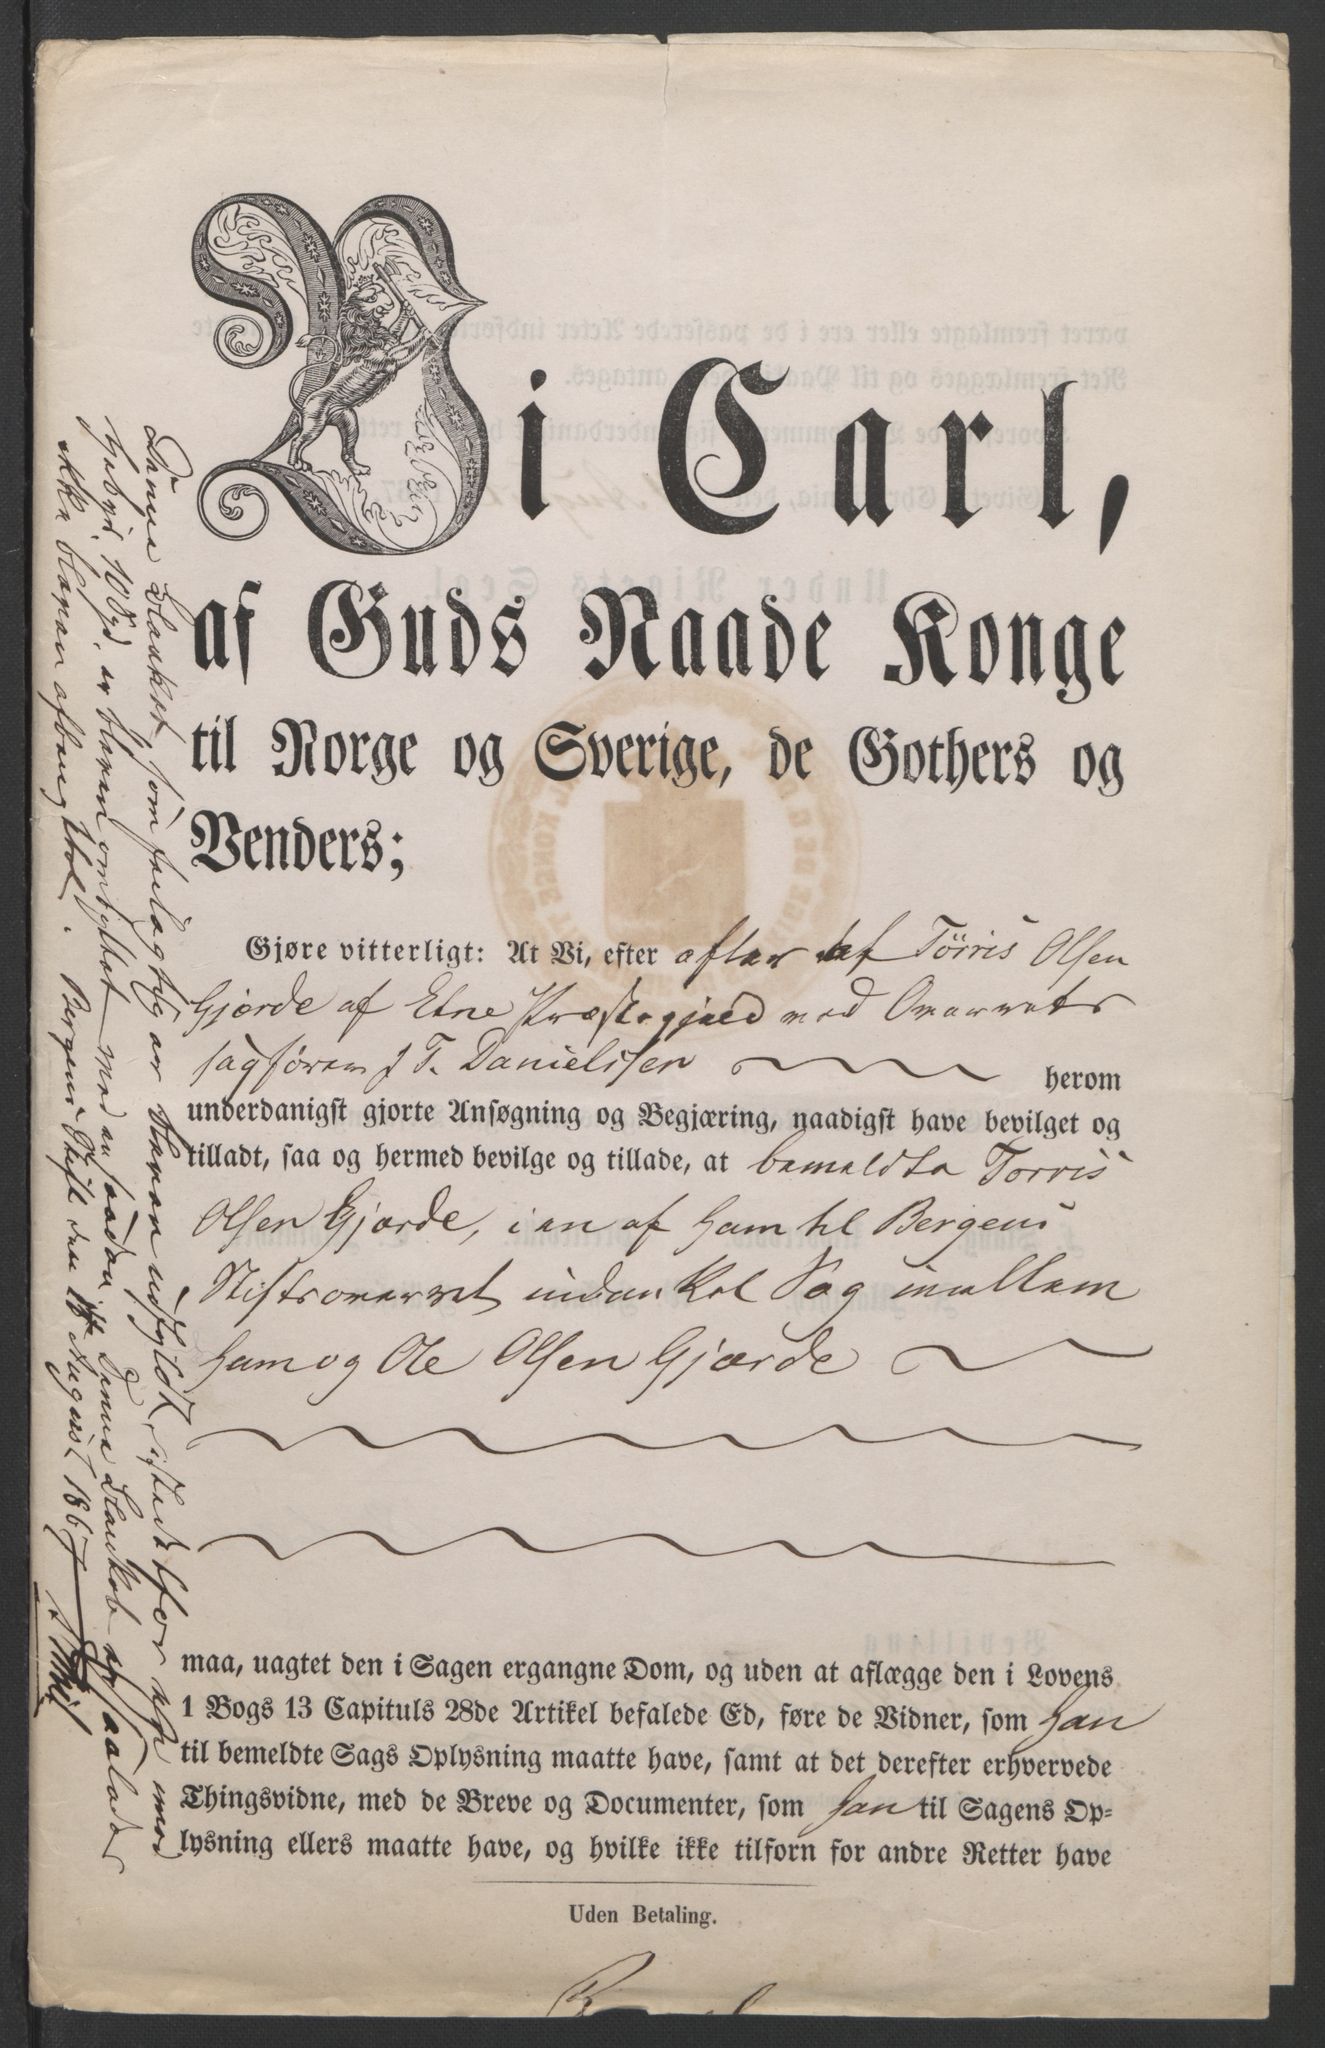 Vi Carl,
af Guds Naade Konge
til Norge og Sverige, de Gothers og
Venders;
Gjøre vitterligt: At Vi, efter efter af Tørris Olsen
Gjærde af Etne Præstegjæld ved Overrets
sagfører J T. Danielssen herom
underdanigst gjorte Ansøgning og Begjæring, naadigst have bevilget og
tilladt, saa og hermed bevilge og tillade, at bemeldte Torris
Olsen Gjærde, i en af ham til Bergens
Stiftsoverret indankel Sag imellem
ham og Ole Olsen Gjærde
maa, uagtet den i Sagen ergangne Dom, og uden at aflægge den i Lovens
1 Bogs 13 Capituls 28de Artikel befalede Ed, føre de Vidner, som han
til bemeldte Sags Oplysning maatte have, samt at det derefter erhvervede
Thingsvidne, med de Breve og Documenter, som han til Sagens Op-
lysning ellers maatte have, og hvilke ikke tilforn for andre Retter have
Uden Betaling.
Denne Blanket, som feilagtig er bleven udfyldt, istedetfor en mod
Gebyr, 108 ß, er bleven ombyttet med en saadan; denne Blanket er saaledes
ikke bleven afbenyttet. Bergens Stift den August 1867